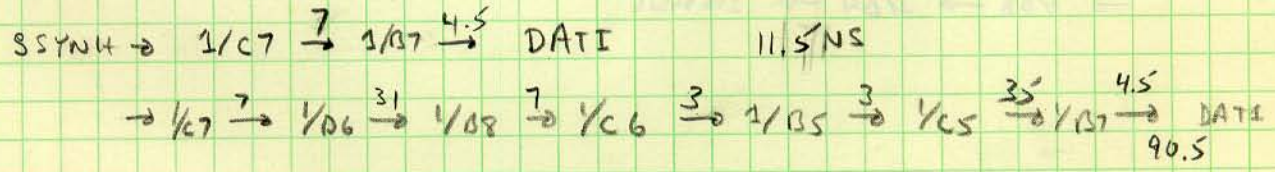 SSYNH → 1/C7 7→ 1/B7 4.5→ DATI 11.5 NS
→ 1/C7 7→ 1/D6 31→ 1/B8 7→ 1/C6 3→ 1/B5 3→ 1/C5 35→ 1/B7 4.5→ DATI
90.5